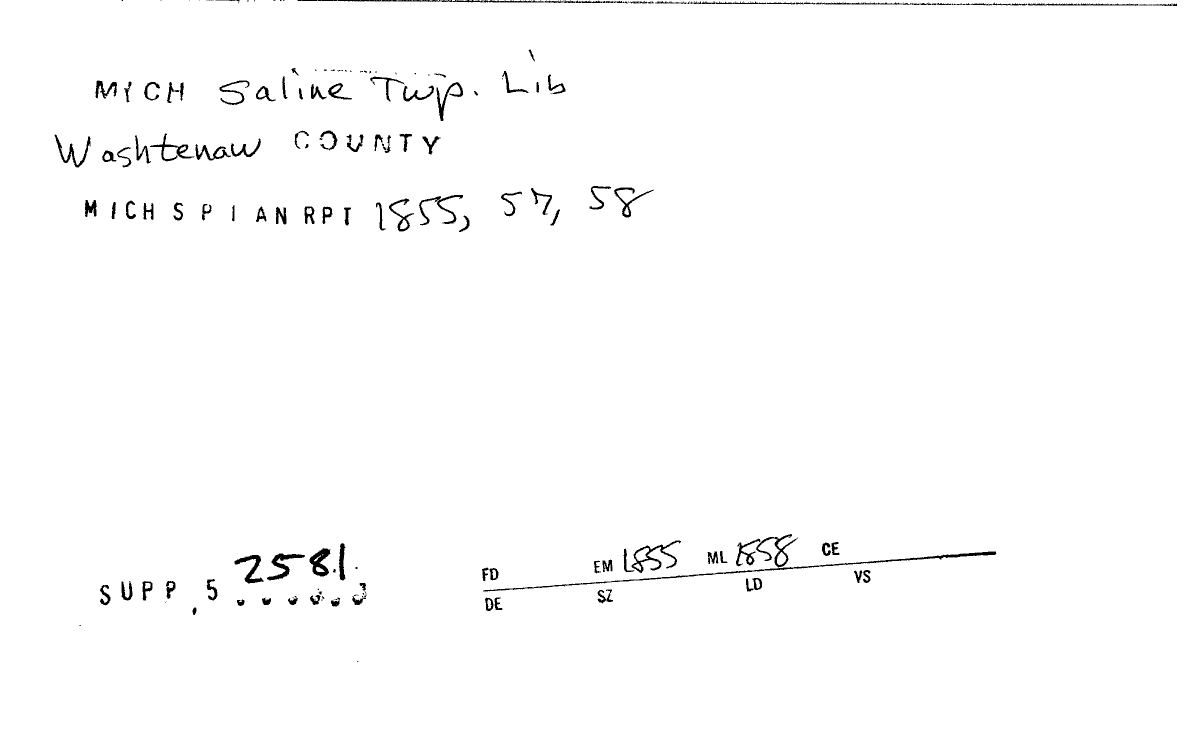 MICH Saline Twp. Lib
Washtenaw COUNTY
MICH S P I AN RPT 1855, 57, 58
SUPP, 5 2581
FD EM 1855 ML 1858 CE
DE SZ LD VS